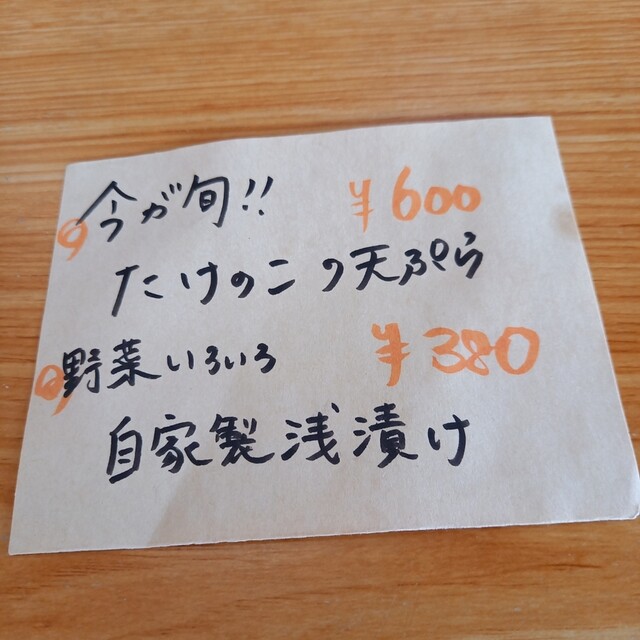 今が旬!! ¥600
たけのこの天ぷら
野菜いろいろ ¥380
自家製浅漬け